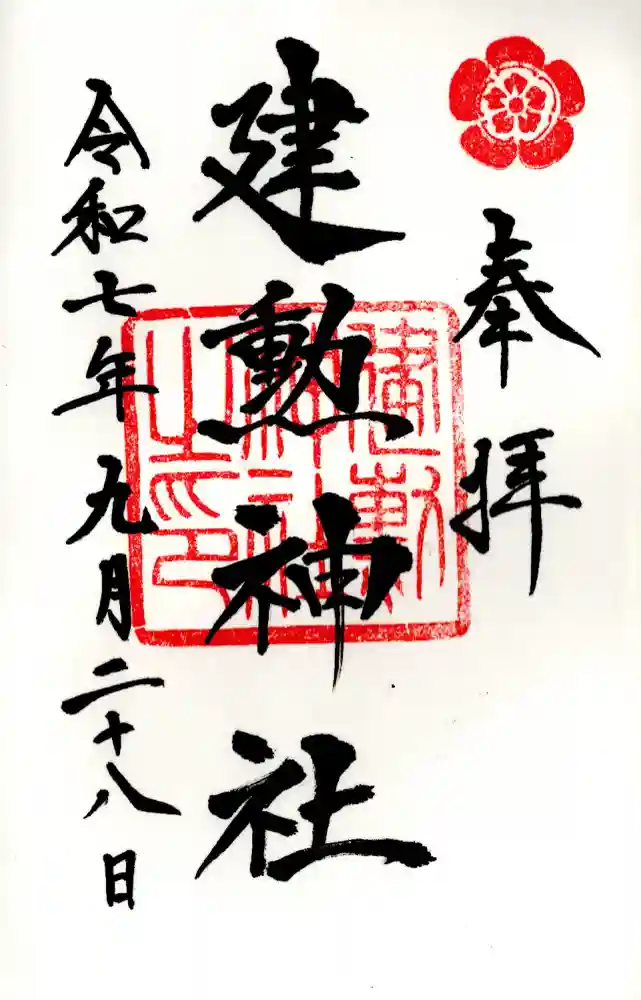 奉拝
建勲神社
令和七年九月二十八日
建勲
神社
之印